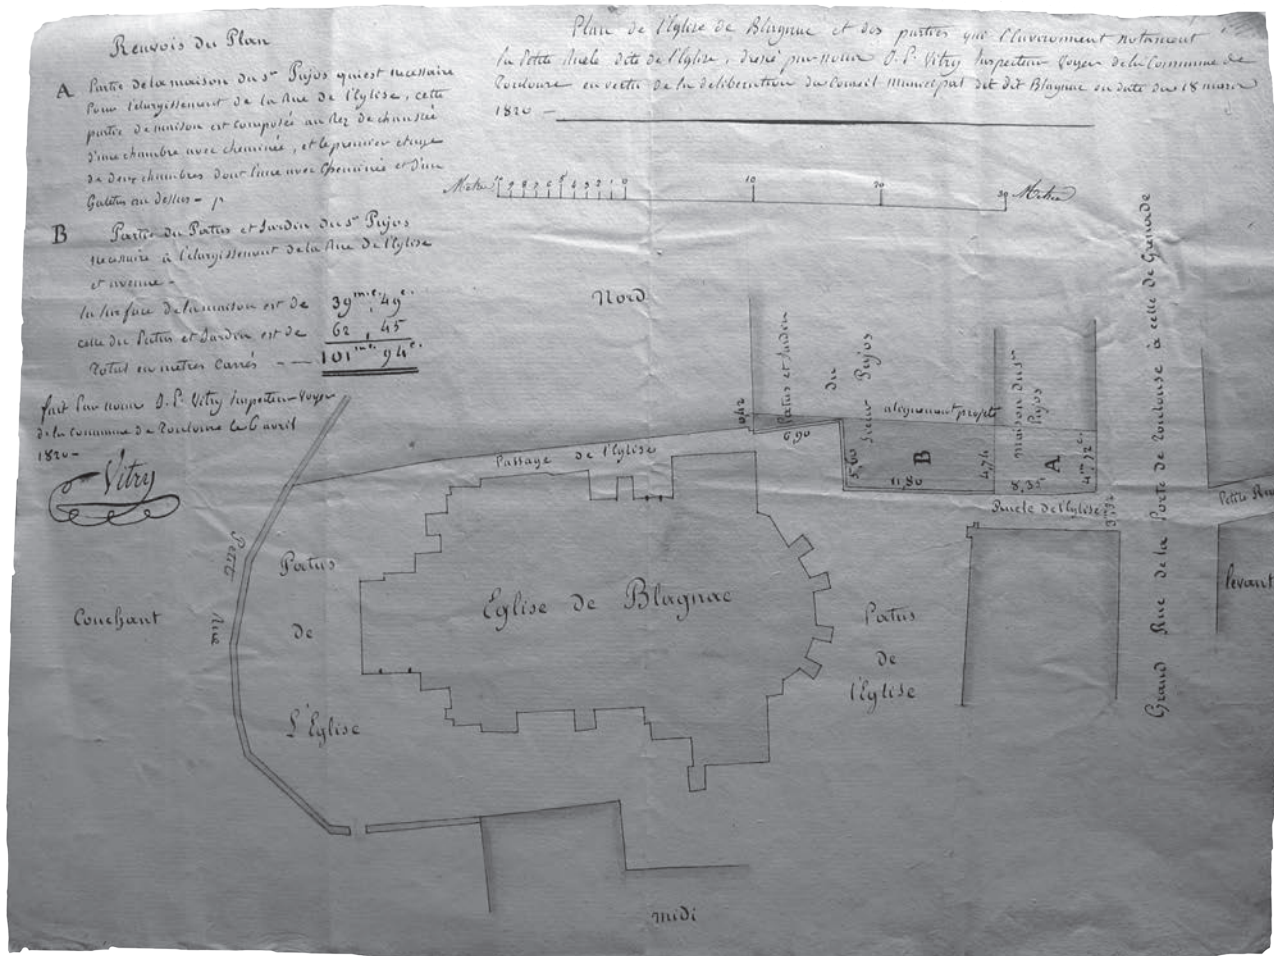 Renvois du Plan
A Partie de la maison du Sr Pujos qui est necessaire
Pour l'élargissement de la Rue de l'Eglise, cette
partie de maison est composée au Rez de chaussée
d'une chambre avec cheminée, et le premier etage
de deux chambres dont l'une avec cheminée et d'un
Galetas au dessus
B Partie du Patus et Jardin du Sr Pujos
necessaire à l'élargissement de la Rue de l'Eglise
et avenue -
la surface de la maison est de 39 m.c. 49 c.
celle du Patus et Jardin est de 62, 45
Total en mètres carrés - 101 m.c. 94 c.
fait Par nous J. P. Vitry inspecteur Voyer
de la Commune de Toulouse le 6 avril
1820 -
Vitry
Plan de l'Eglise de Blagnac et des parties qui l'Environnent notamment
la Petite Ruele dite de l'Eglise, dressé par nous J. P. Vitry Inspecteur Voyer de la Commune de
Toulouse en vertu de la deliberation du Conseil municipal du dit Blagnac en date du 18 mars
1820 -
Metres 10 9 8 7 6 5 4 3 2 1 0 10 20 30 Metres
Nord
Patus et Jardin
du
Sieur Pujos
maison du Sr
Pujos
alignement projeté
0,42
6,90
5,00
11,80
B
4,74
8,35
A
4 m. 72 c.
Passage de l'Eglise
Ruele de l'Eglise
Grand Rue de la Porte de Toulouse à celle de Grenade
Petite Rue
levant
Petite Rue
Couchant
Patus
de
L'Eglise
Eglise de Blagnac
Patus
de
l'Eglise
midi